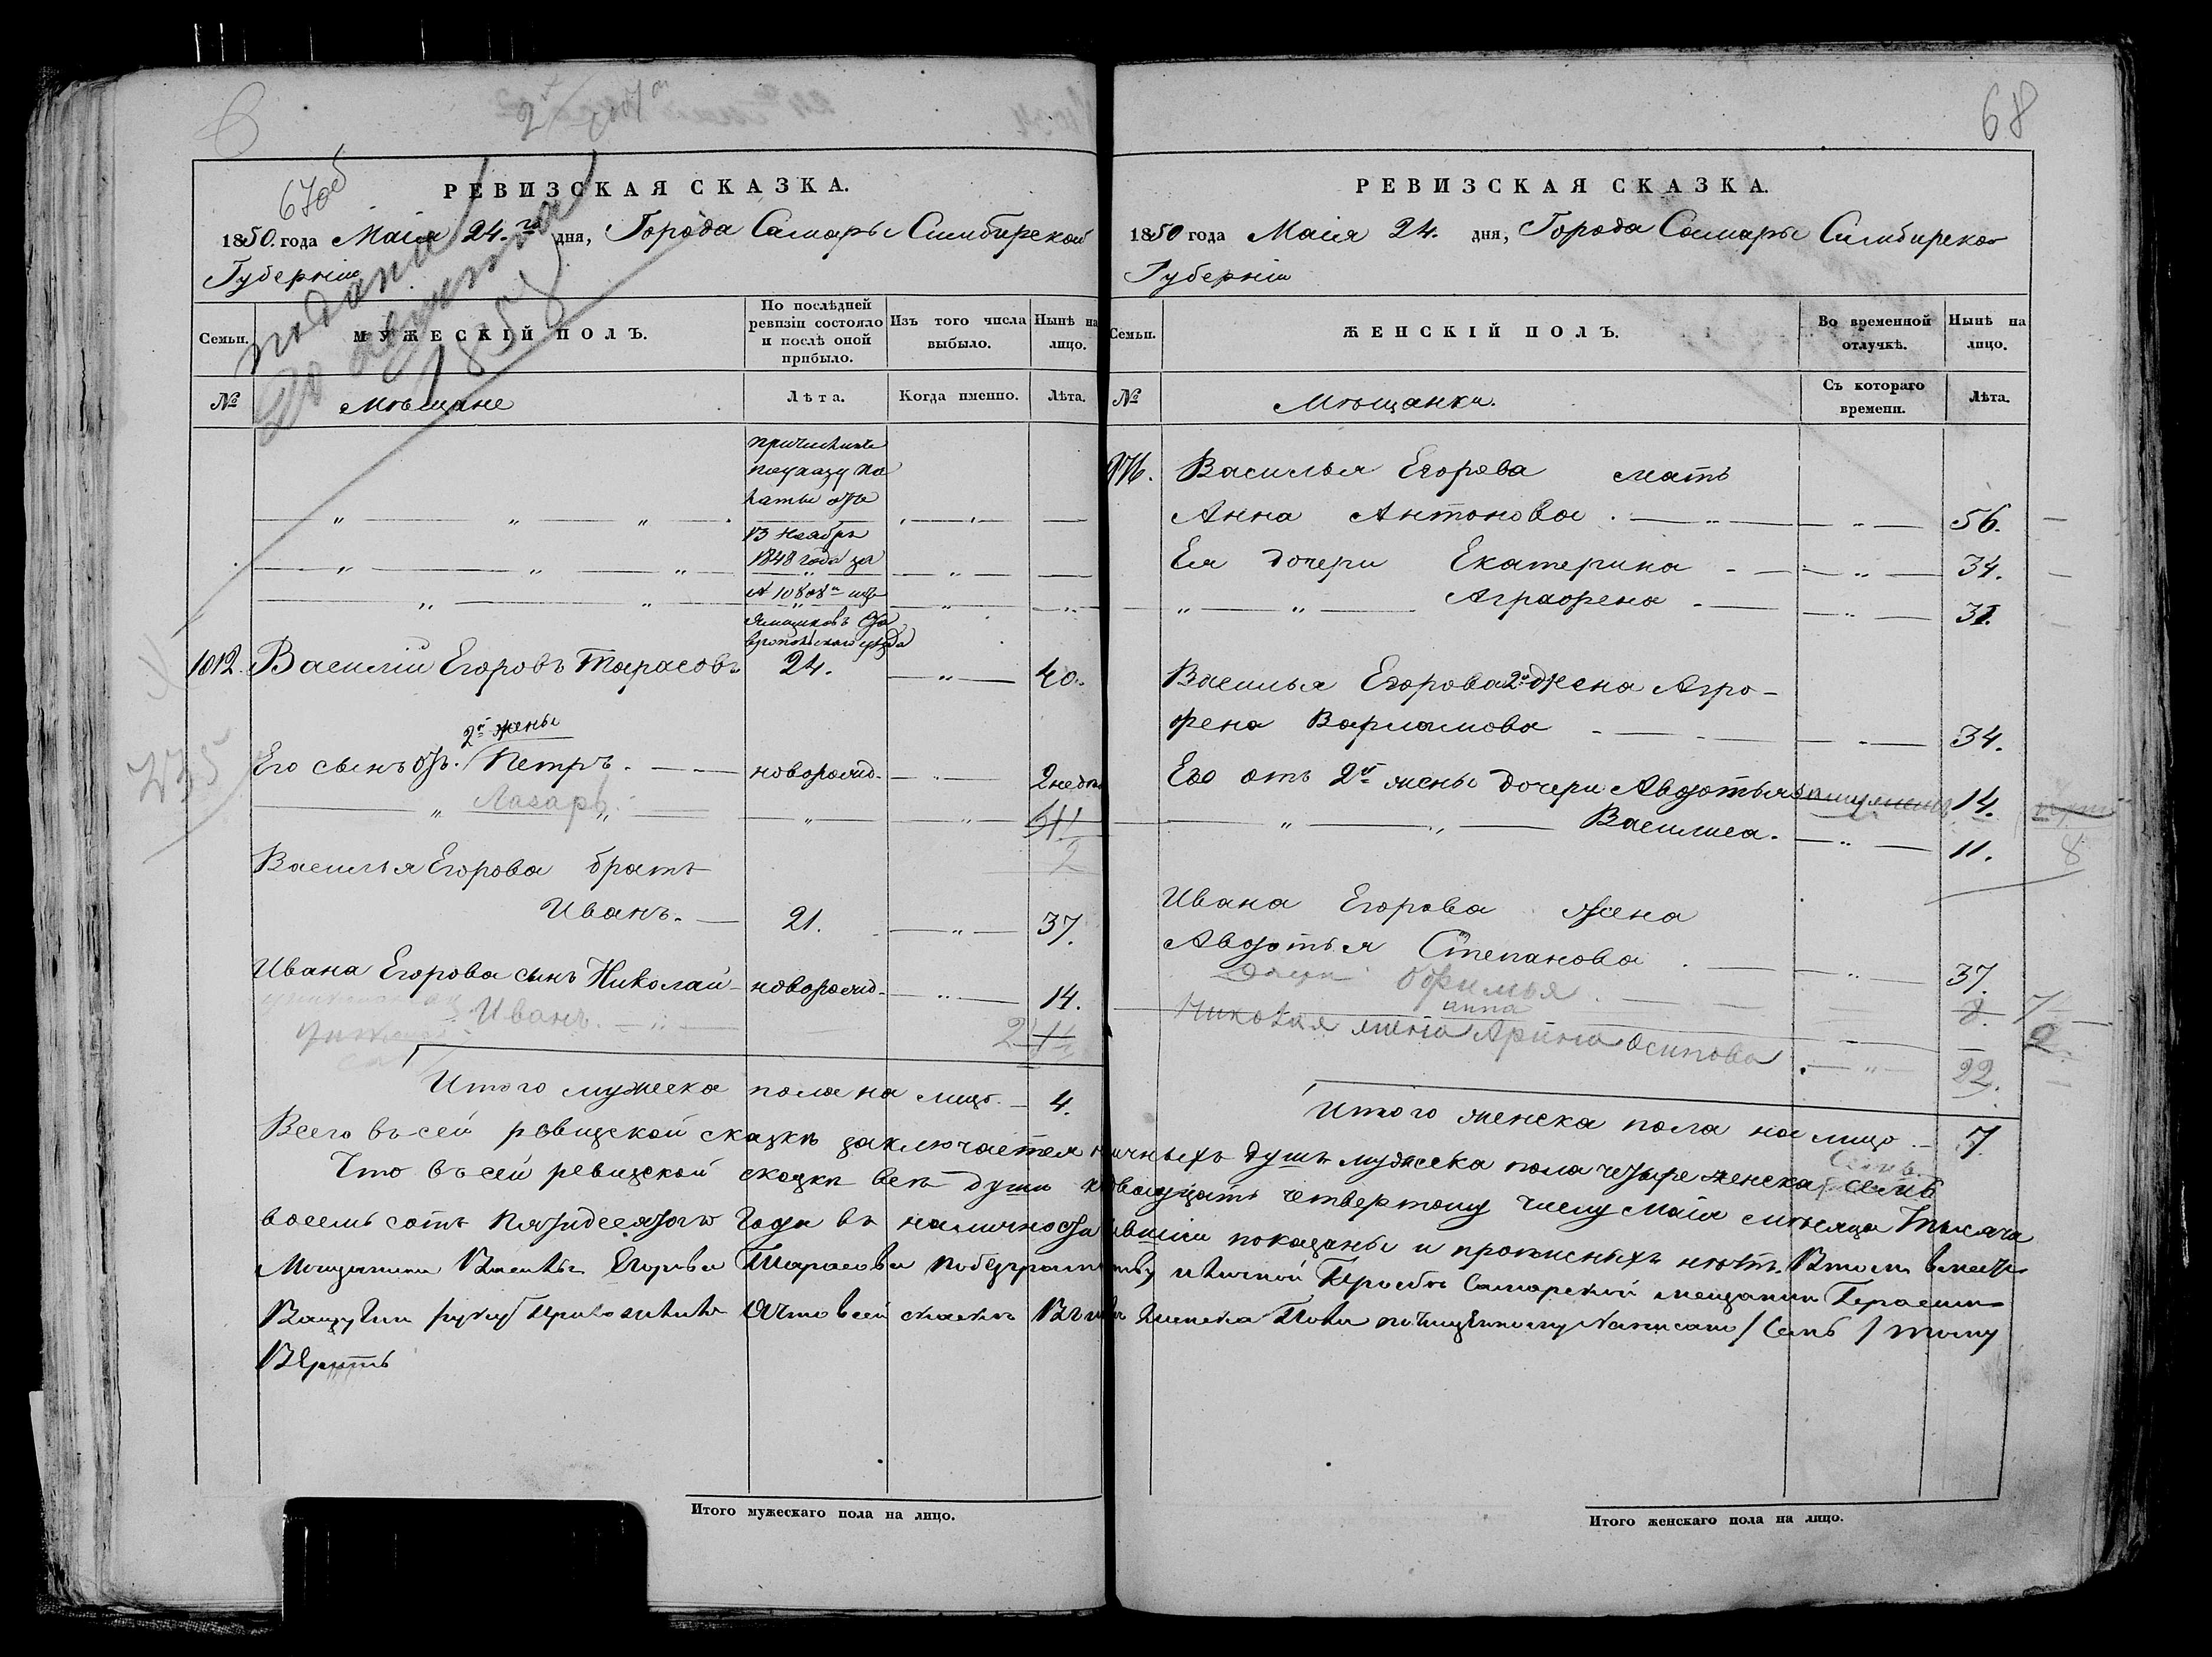 6
67об
РЕВИЗСКАЯ СКАЗКА.
1850. года Маія 24.го дня, Города Самары Симбирской
Губерніи
подана
1857
Семьи.
МУЖЕСКІЙ ПОЛЪ.
По послѣдней ревизіи состояло и послѣ оной прибыло.
Изъ того числа выбыло.
Нынѣ на лицо.
№
Мѣщане
Лѣта.
Когда именно.
Лѣта.
причислены
по указу па
латы отъ
13 Ноября
1848 года за
№ 10808 изъ
Ямщиковъ Ста
вропольскаго уѣзда
1012. Василій Егоровъ Тарасовъ 24. 40.
235
2й жены
Его сынъ отъ Петръ. новорожд. 2 недѣл
Лазарь.
2
Василья Егорова братъ
Иванъ. 21. 37.
Ивана Егорова сынъ Николай новорожд. 14.
Иванъ.
Итого мужеска пола на лицо. 4.
68
РЕВИЗСКАЯ СКАЗКА.
1850 года Маія 24. дня, Города Самары Симбирской
Губерніи
Семьи.
ЖЕНСКІЙ ПОЛЪ.
Во временной отлучкѣ.
Нынѣ на лицо.
№
Мѣщанки.
Съ котораго времени.
Лѣта.
Василья Егорова мать
Анна Антонова. 56.
Ея дочери Екатерина 34.
Аграфена 31.
Василья Егорова 2я жена Агра-
фена Варламова 34.
Его отъ 2й жены дочери Авдотья 14.
Василиса. 11. 8
Ивана Егорова жена
Авдотья Степанова. 37.
дочери Офимья 8. 7
анна 2
Николая жена Арина Осипова 22.
Итого женска пола на лицо. 7.
Всего въ сей ревизской сказкѣ заключается наличныхъ душъ мужеска пола четыре женска семь
Что въ сей ревизской сказкѣ всѣ души къ двадцать четвертому числу Маія мѣсяца Тысяча
восемь сотъ пятидесятаго Года въ наличности состоявшіи показаны и прописныхъ нѣтъ. Въ томъ вместо
Мещанина Василья Егорова Тарасова по безграмотству и личной Просьбѣ Самарской мещанин Герасим
руку приложилъ А что в сей сказке женска пола по написано / Семь / тому
Верить
Итого мужескаго пола на лицо.
Итого женскаго пола на лицо.